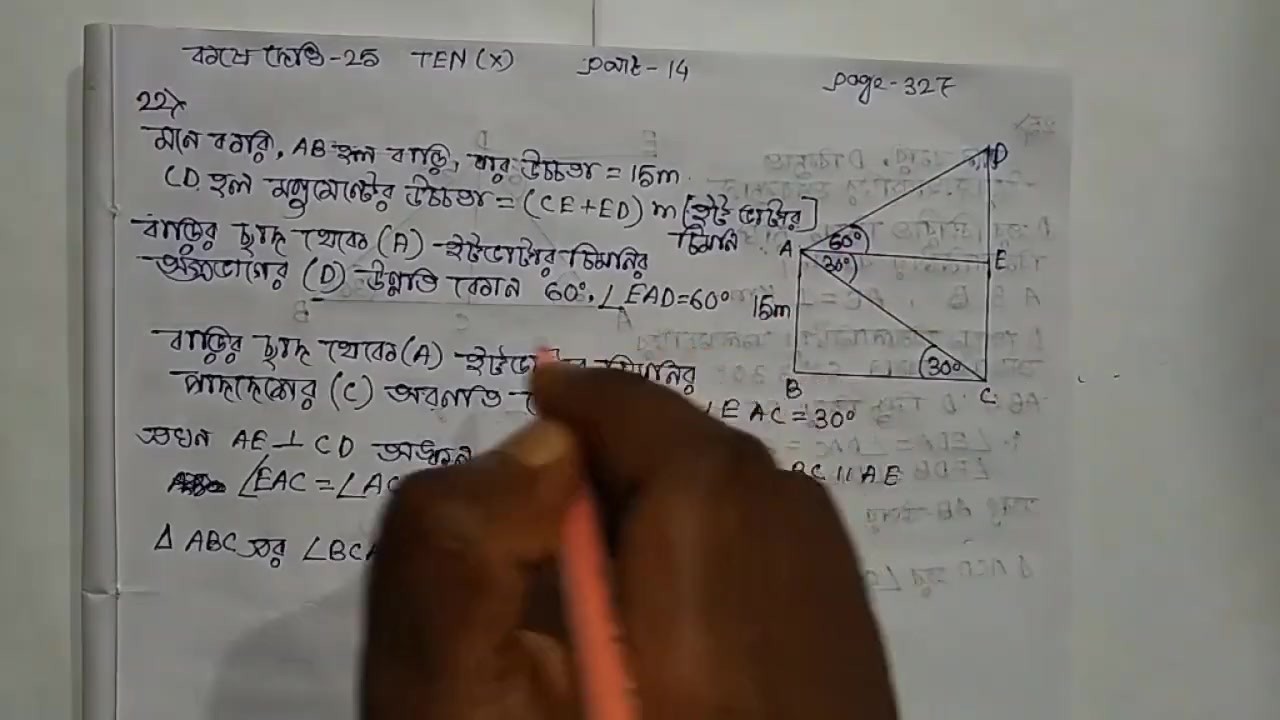 কষে দেখি-25 TEN (X) part-14 page-327
22>
মনে করি, AB হল বাড়ি, যার উচ্চতা = 15m.
CD হল মনুমেন্টের উচ্চতা = (CE+ED) m [ইট ভাটার চিমনি]
বাড়ির ছাদ থেকে (A) ইটভাটার চিমনির
অগ্রভাগের (D) উন্নতি কোন 60°. ∠EAD=60°
বাড়ির ছাদ থেকে (A) চিমনির
পাদদেশের (C) অবনতি ∠EAC = 30°
এখন AE ⊥ CD অঙ্কন
∠EAC = ∠AC BC || AE
Δ ABC এর ∠BCA
D
A
60°
30°
E
15m
B
30°
C